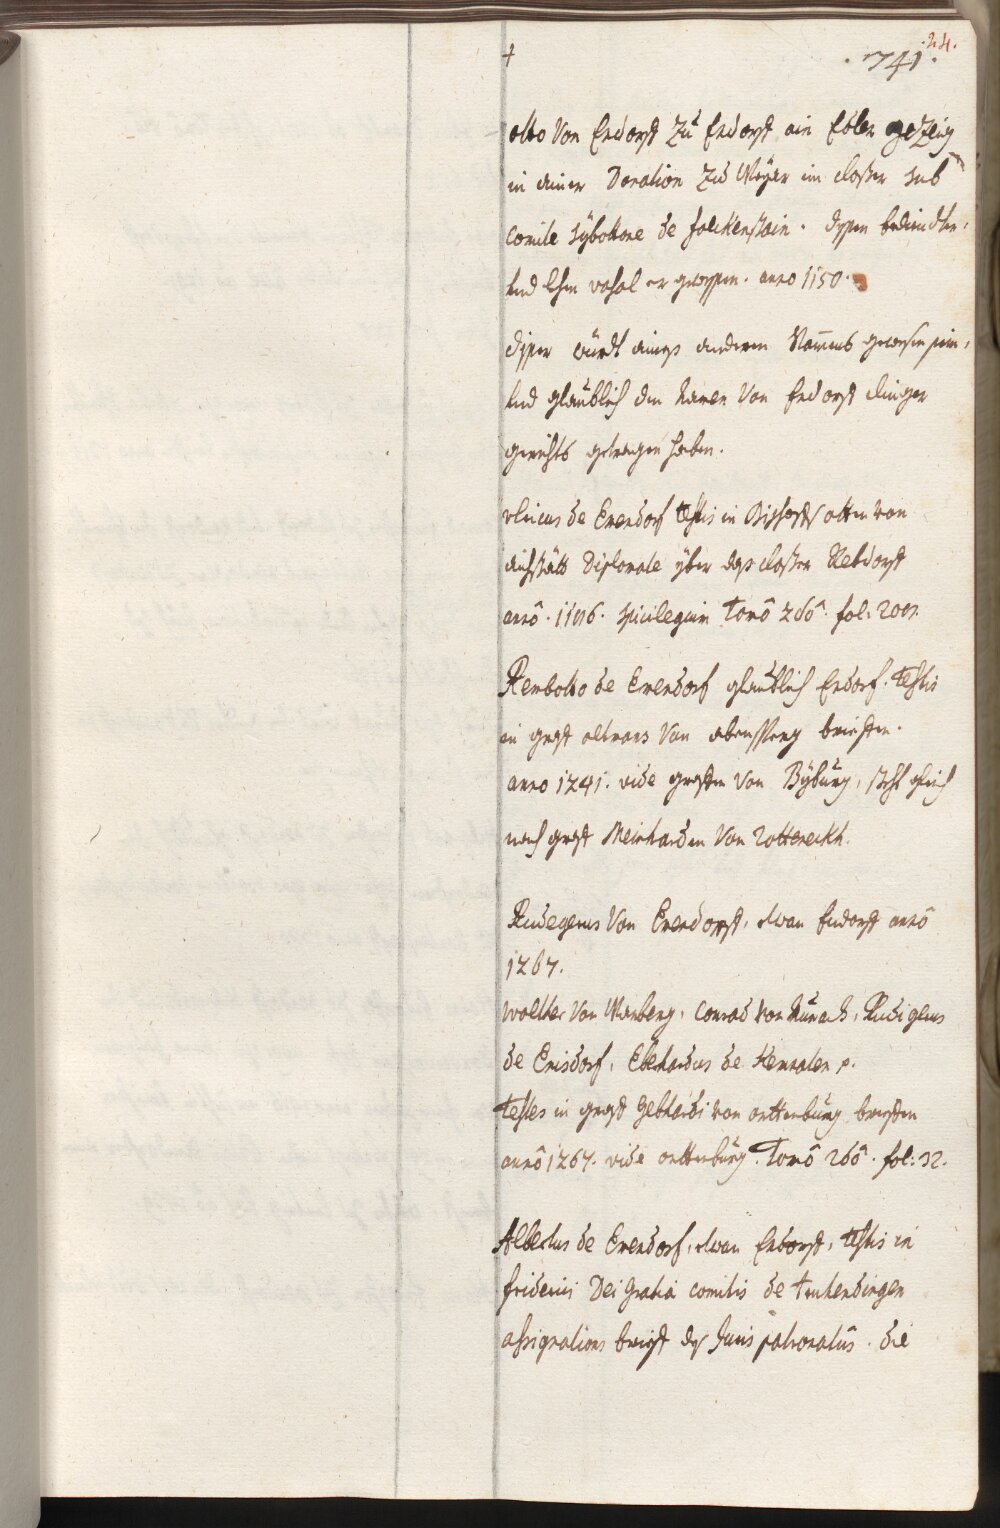 24.
+ .741.
otto Von Endorff Zu Endorff ein Edler gezeug
in einer Donation Zu Weyer im closter sub
comite Sybottone de falckenstain. dessen bediendter,
und Lehen vasal er gewessen. anno 1150.
disser würdt aines anderen Nammens gewesen sein,
und glaublich den namen Von Endorff Clinger
gerichts getragen haben.
vlricus de Erendorf testis in Bischoffs otten von
aichstätt Diplomate yber das closter Rebdorff
annô. 1186. spicilegium Tomô 2dô. fol: 2001.
Rembotto de Erendorf glaublich Endorf. testis
in graff altmans Von abenssperg brieffen.
anno 1241. vide graffen Von Byburg, steht gleich
nach graff Meinharden Von Rotteneckh.
Rudegerus Von Erendorff, etwan Endorff annô
1267.
wolther Von Warberg, conrad von Aurach, Rudigerus
de Erisdorf, Eberhardus de Kemnaten p.
testes in graff Gebhardi von orttenburg brieffen
annô 1267. vide orttenburg. Tomô 2dô. fol: 32.
Albertus de Erendorf, etwan Endorff, testis in
friderici Dei Gratia comitis de truhendingen
assignations brieff des Juris patronatûs. die